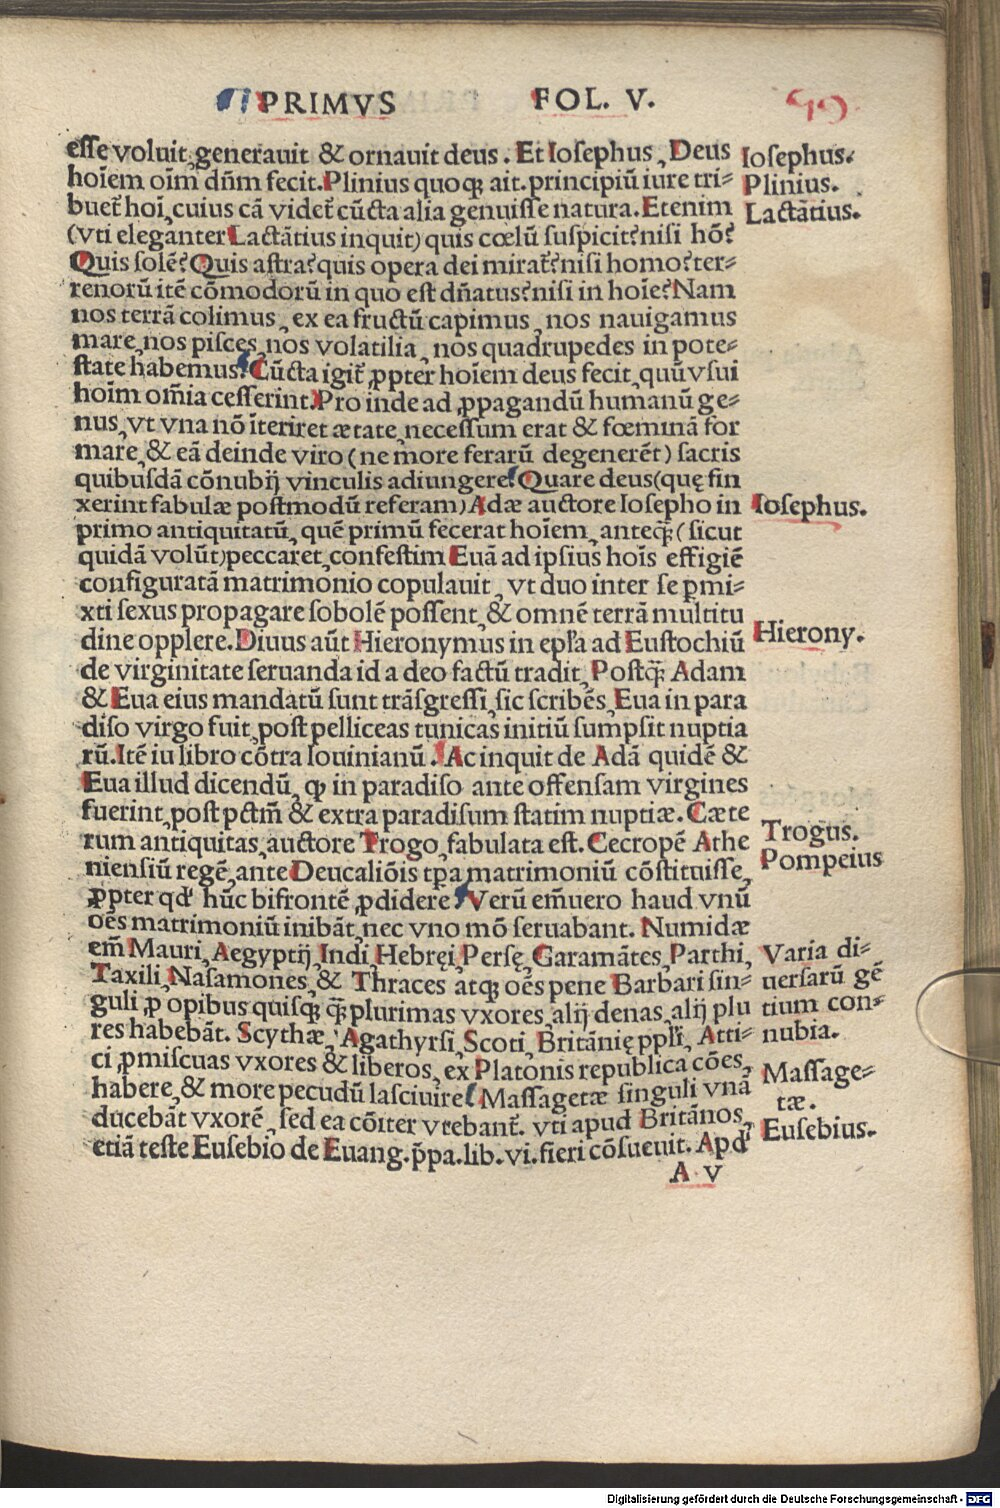 PRIMVS FOL. V.
esse voluit, generauit & ornauit deus. Et Iosephus, Deus
hoīem oīm dn̄m fecit. Plinius quoqꝫ ait. principiū iure tri⸗
buet̄ hoī, cuius cā videt̄ cūcta alia genuisse natura. Etenim
(vti eleganter Lactātius inquit) quis cœlū suspicit? nisi hō?
Quis solē? Quis astra? quis opera dei mirat̄? nisi homo? ter⸗
renorū itē cōmodorū in quo est dn̄atus? nisi in hoīe? Nam
nos terrā colimus, ex ea fructū capimus, nos nauigamus
mare, nos pisces, nos volatilia, nos quadrupedes in pote⸗
state habemus. Cūcta igit̄ ꝓpter hoīem deus fecit, quū vsui
hoīm om̄ia cesserint. Pro inde ad ꝓpagandū humanū ge⸗
nus, vt vna nō īteriret ætate, necessum erat & fœminā for
mare, & eā deinde viro (ne more ferarū degenerēt) sacris
quibusdā cōnubij vinculis adiungere. Quare deus (quę fin
xerint fabulæ postmodū referam) Adæ auctore Iosepho in
primo antiquitatū, quē primū fecerat hoīem, anteqꝫ̄ (sicut
quidā volūt) peccaret, confestim Euā ad ipsius hoīs effigiē
configuratā matrimonio copulauit, vt duo inter se ꝑmi⸗
xti sexus propagare sobolē possent, & omnē terrā multitu
dine opplere. Diuus aūt Hieronymus in epl̄a ad Eustochiū
de virginitate seruanda id a deo factū tradit, Postqꝫ̄ Adam
& Eua eius mandatū sunt trāsgressi, sic scribēs, Eua in para
diso virgo fuit, post pelliceas tunicas initiū sumpsit nuptia
rū. Itē iu libro cōtra Iouinianū. Ac inquit de Adā quidē &
Eua illud dicendū, ꝙ in paradiso ante offensam virgines
fuerint, post pctm̄ & extra paradisum statim nuptiæ. Cæte
rum antiquitas, auctore Trogo, fabulata est. Cecropē Athe
niensiū regē, ante Deucaliōis tꝑa matrimoniū cōstituisse,
ꝓpter qd' hūc bifrontē ꝓdidere. Verū em̄uero haud vnū
oēs matrimoniū inibāt, nec vno mō seruabant. Numidæ
em̄ Mauri, Aegyptij, Indi, Hebręi, Persę, Garamātes, Parthi,
Taxili, Nasamones, & Thraces atqꝫ oēs pene Barbari sin⸗
guli ꝓ opibus quisqꝫ qꝫ̄ plurimas vxores, alij denas, alij plu
res habebāt. Scythæ, Agathyrsi, Scoti, Britānię ppl̄i, Atti⸗
ci ꝓmiscuas vxores & liberos, ex Platonis republica cōes,
habere, & more pecudū lasciuire. Massagetæ singuli vnā
ducebāt vxorē, sed ea cōiter vtebant̄. vti apud Britānos,
etiā teste Eusebio de Euang. p̄pa. lib. vi. fieri cōsueuit. Apd'
A v
Iosephus.
Plinius.
Lactātius.
Iosephus.
Hierony.
Trogus.
Pompeius
Varia di⸗
uersarū gē
tium con⸗
nubia.
Massage⸗
tæ.
Eusebius.
Digitalisierung gefördert durch die Deutsche Forschungsgemeinschaft - DFG